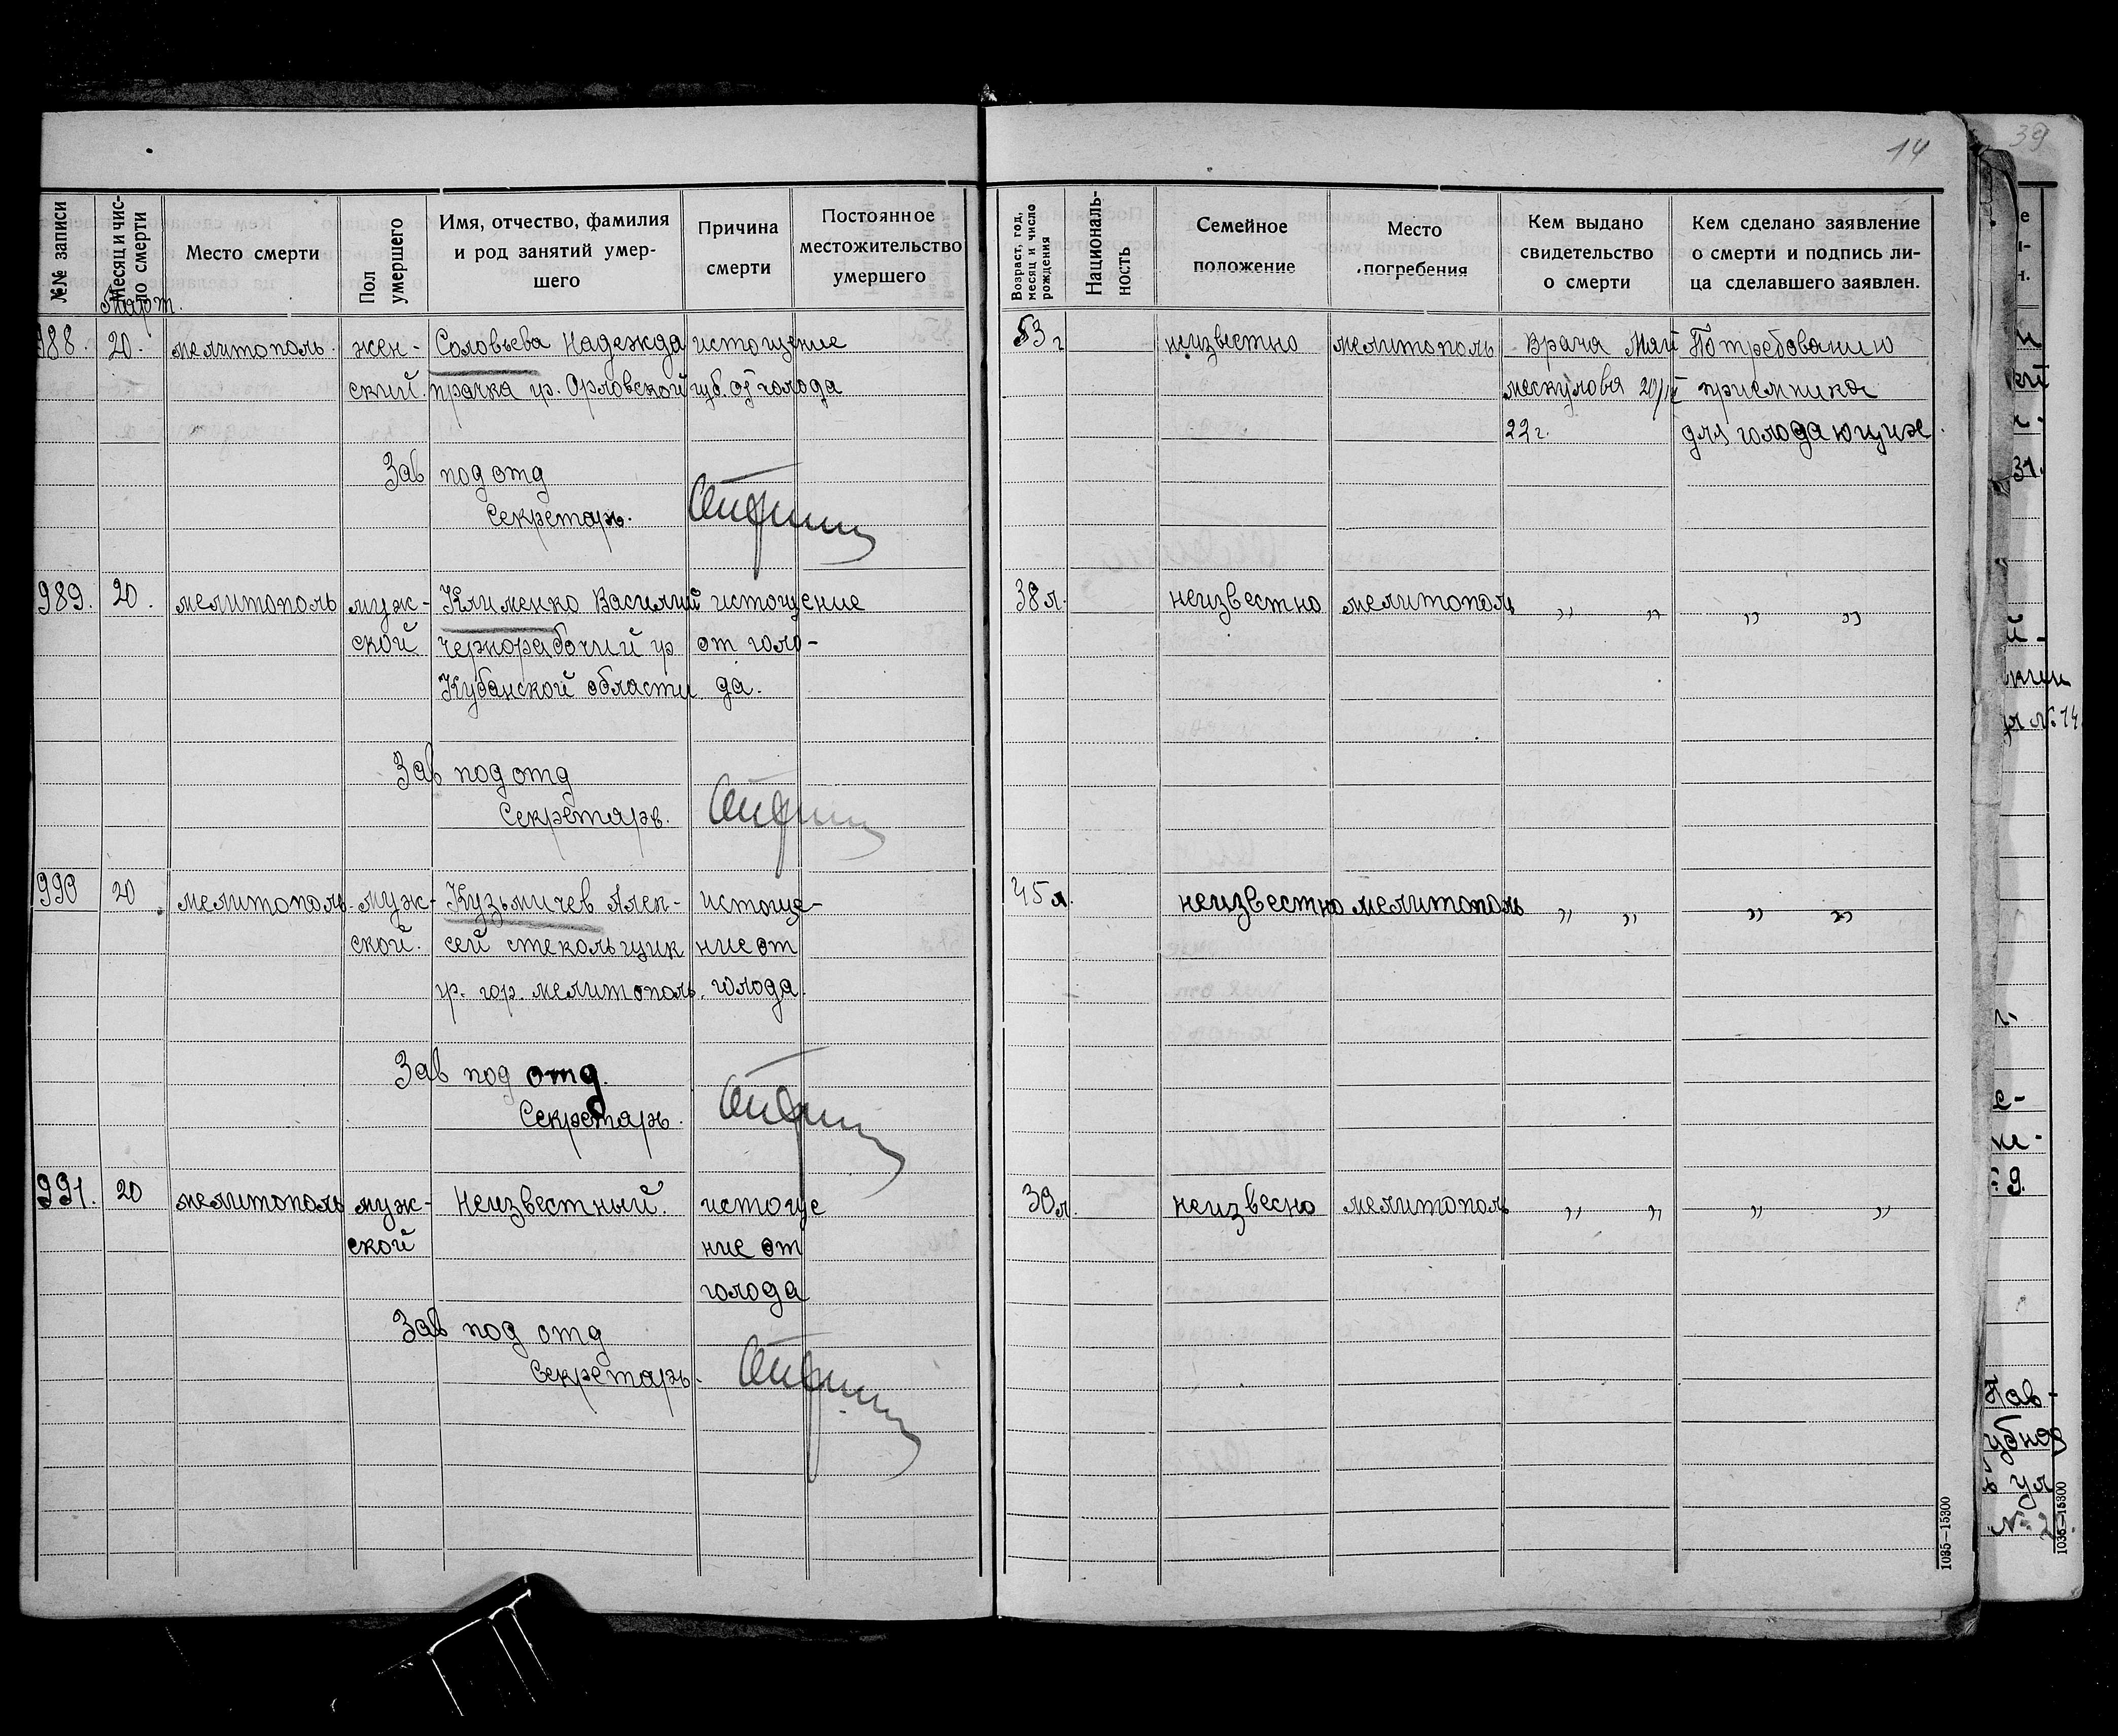 14
39
№№ записи
Месяц и чис-
ло смерти
Место смерти
Пол
умершего
Имя, отчество, фамилия
и род занятий умер-
шего
Причина
смерти
Постоянное
местожительство
умершего
Возраст, год,
месяц и число
рождения
Националь-
ность
Семейное
положение
Место
погребения
Кем выдано
свидетельство
о смерти
Кем сделано заявление
о смерти и подпись ли-
ца сделавшего заявлен.
Март.
988. 20. мелитополь. жен- Соловьева Надежда истощение 53 г неизвестно мелитополь Врача Май По требованию
ский. прачка гр. Орловской губ. от голода 20/III приемника
22 г. для голодающих.
Зав под отд
Секретарь.
989. 20. мелитополь муж- Клименко Василий истощение 38 л. неизвестно мелитополь „ „ „ „
ской чернорабочий гр от голо-
Кубанской области да.
Зав под отд
Секретарь.
990 20 мелитополь муж- Кузьмичев Алек- истоще- 45 л. неизвестно мелитополь „ „ „ „
ской. сей стекольщик ние от
гр. гор. мелитополь. голода.
Зав под отд.
Секретарь.
991. 20 мелитополь муж- Неизвестный. истоще 30 л. неизвесно мелитополь „ „ „ „
ской ние от
голода
Зав под отд
Секретарь.
1035—15300
1035—15300